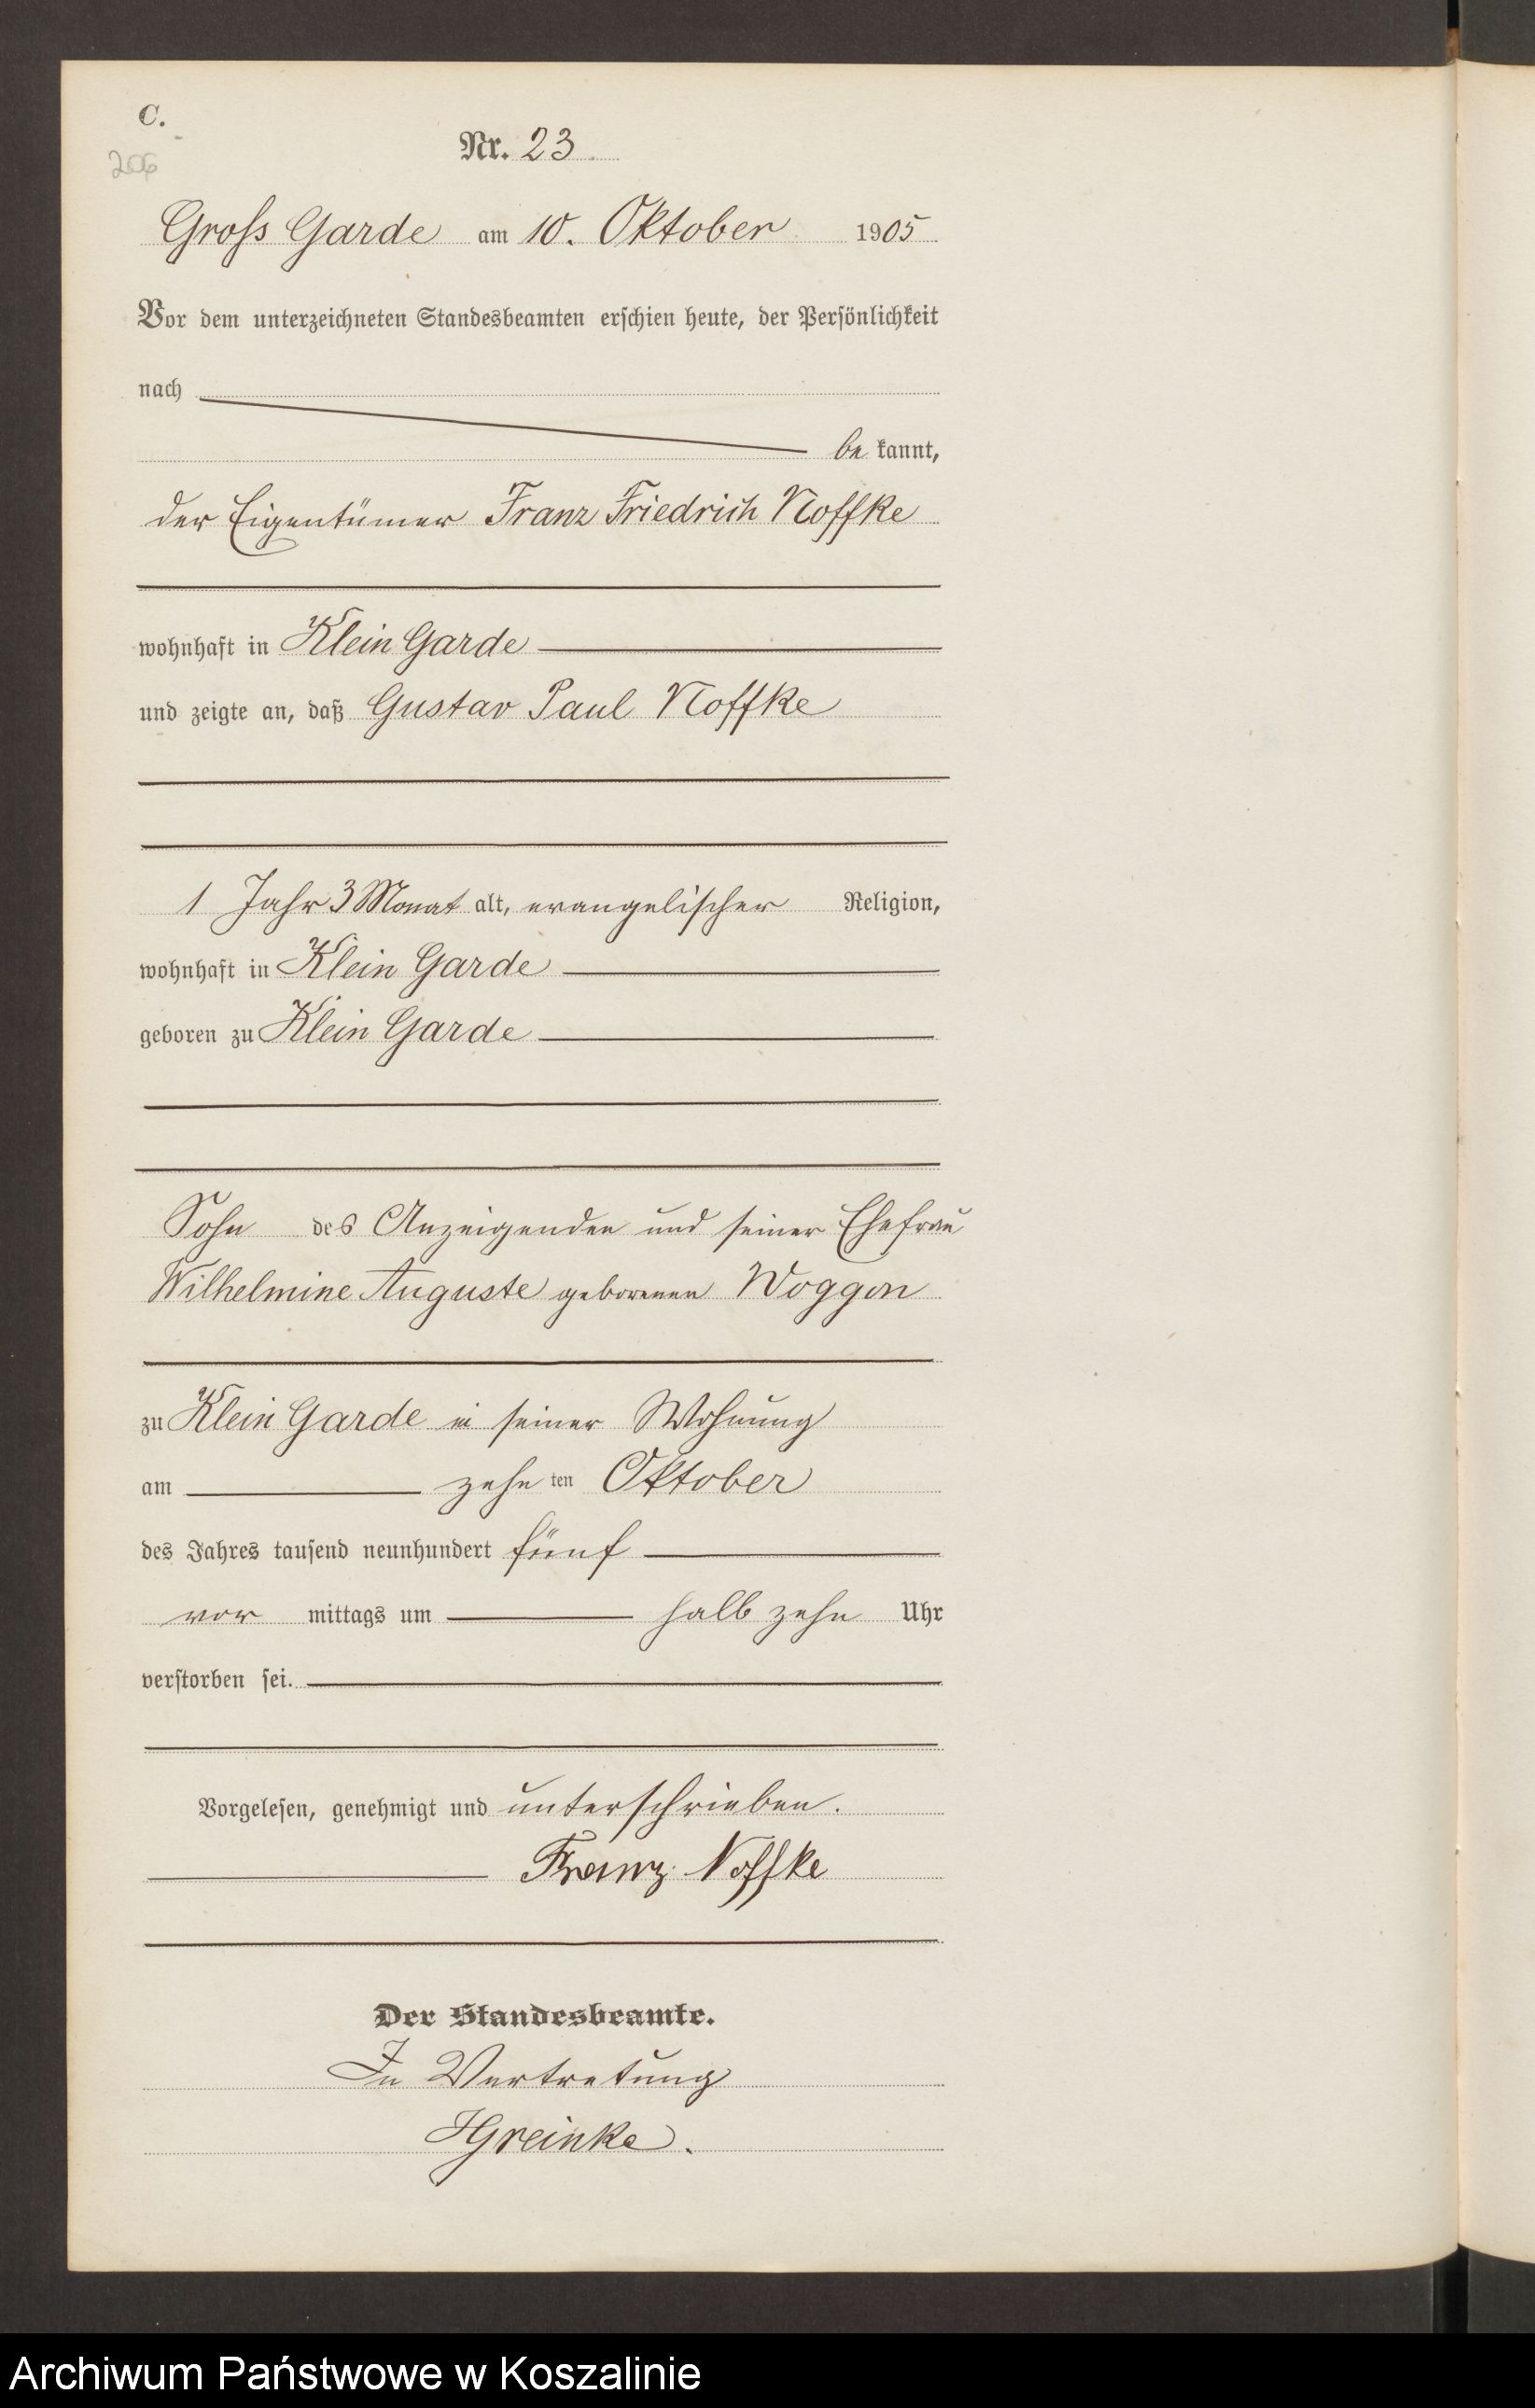 C.
206
Nr. 23
Gross Garde am 10. Oktober 1905
Vor dem unterzeichneten Standesbeamten erschien heute, der Persönlichkeit
nach
be kannt,
der Eigentümer Franz Friedrich Noffke
wohnhaft in Klein Garde
und zeigte an, daß Gustav Paul Noffke
1 Jahr 3 Monat alt, evangelischer Religion,
wohnhaft in Klein Garde
geboren zu Klein Garde
Sohn des Anzeigenden und seiner Ehefrau
Wilhelmine Auguste geborenen Woggon
zu Klein Garde in seiner Wohnung
am zehn ten Oktober
des Jahres tausend neunhundert fünf
vor mittags um halb zehn Uhr
verstorben sei.
Vorgelesen, genehmigt und unterschrieben.
Franz Noffke
Der Standesbeamte.
In Vertretung
HGreinke.
Archiwum Państwowe w Koszalinie